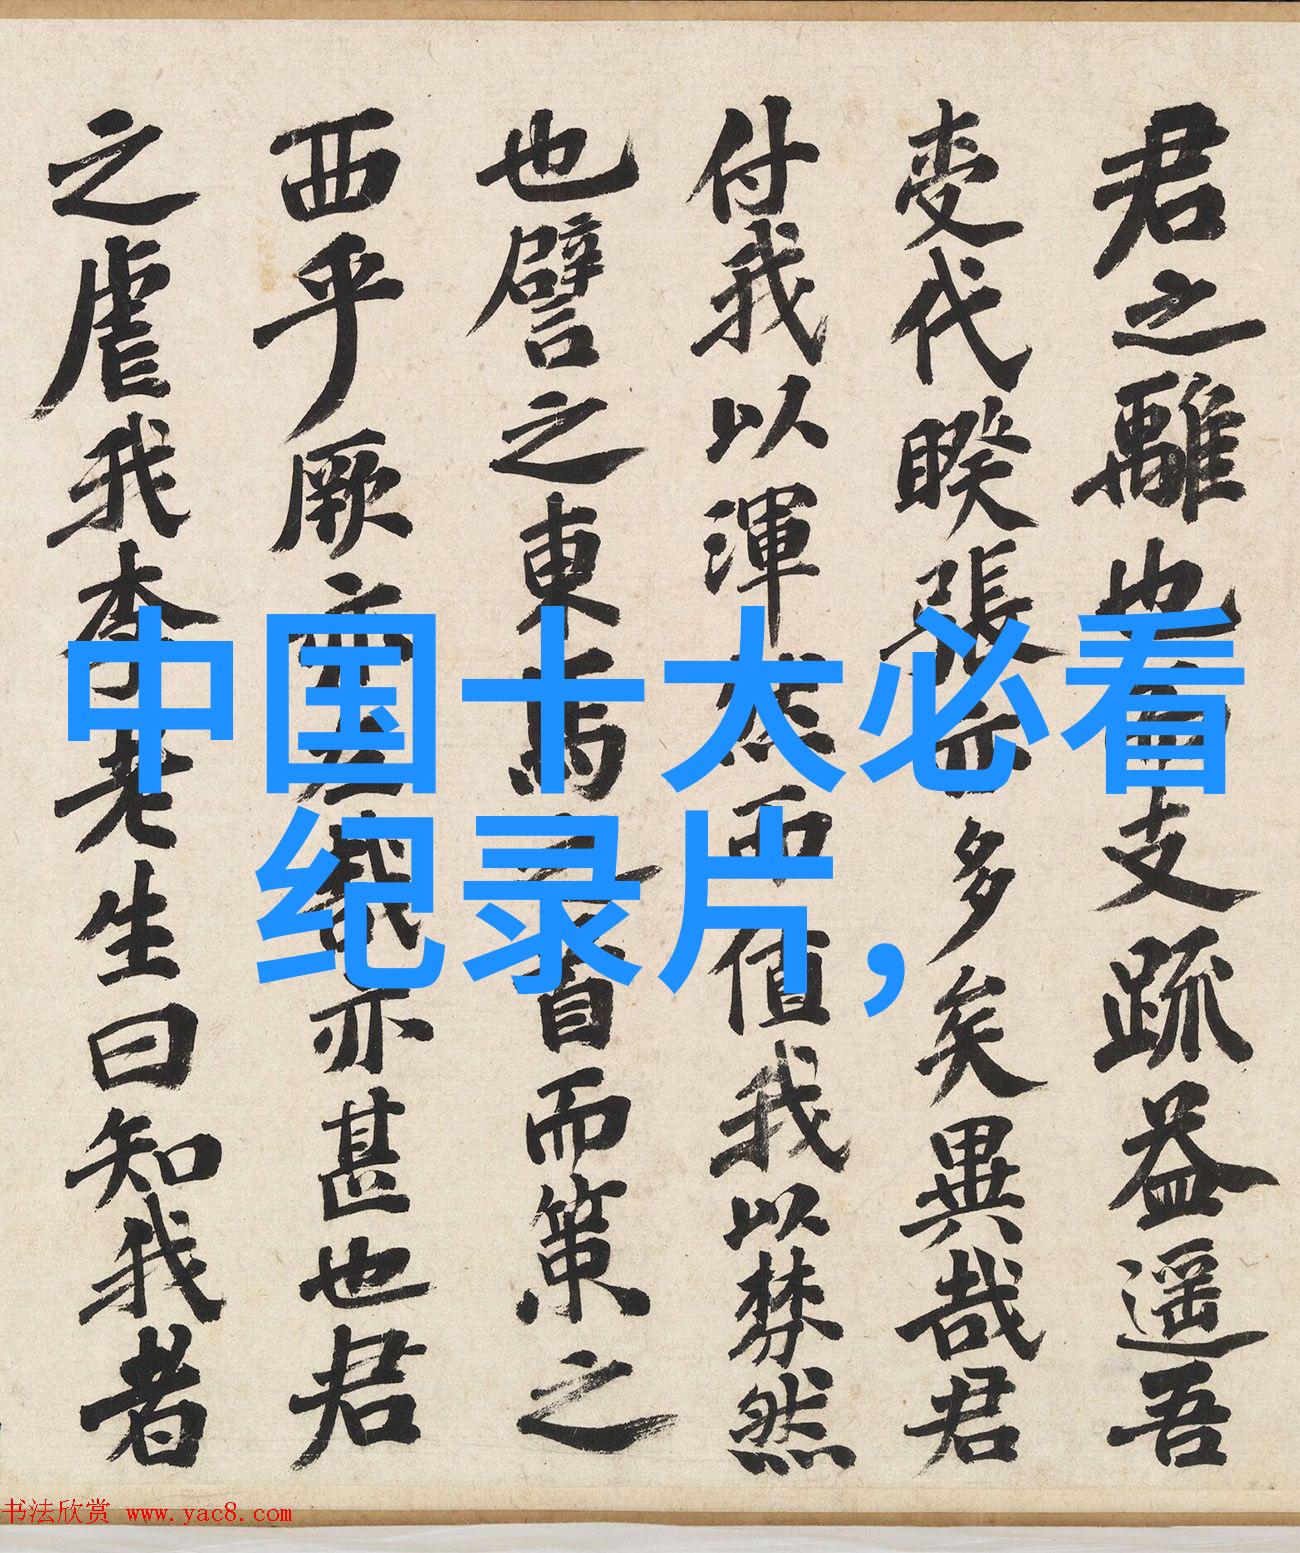 君之離也支疏益遥吾
受代睽張亦多矣異哉君
付我以渾然而值我以棼然
也譬之東馬之首而策之
西乎厥亦左哉亦甚也君
之虐我李老生曰知我者
中国十大必看
纪录片，
书法欣赏 www.yac8.com